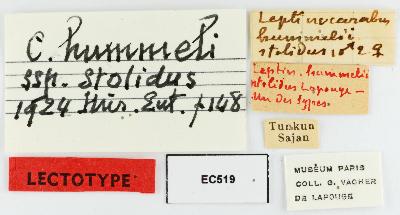 C. hummeli
ssp. stolidus
1924 Mis. Ent. p 148
Leptinocarabus
hummelii
stolidus 1♂ 2♀
Leptin. hummelii
stolidus Lapouge —
Un des types.
Tunkun
Sajan
LECTOTYPE
EC519
MUSÉUM PARIS
COLL. G. VACHER
DE LAPOUGE